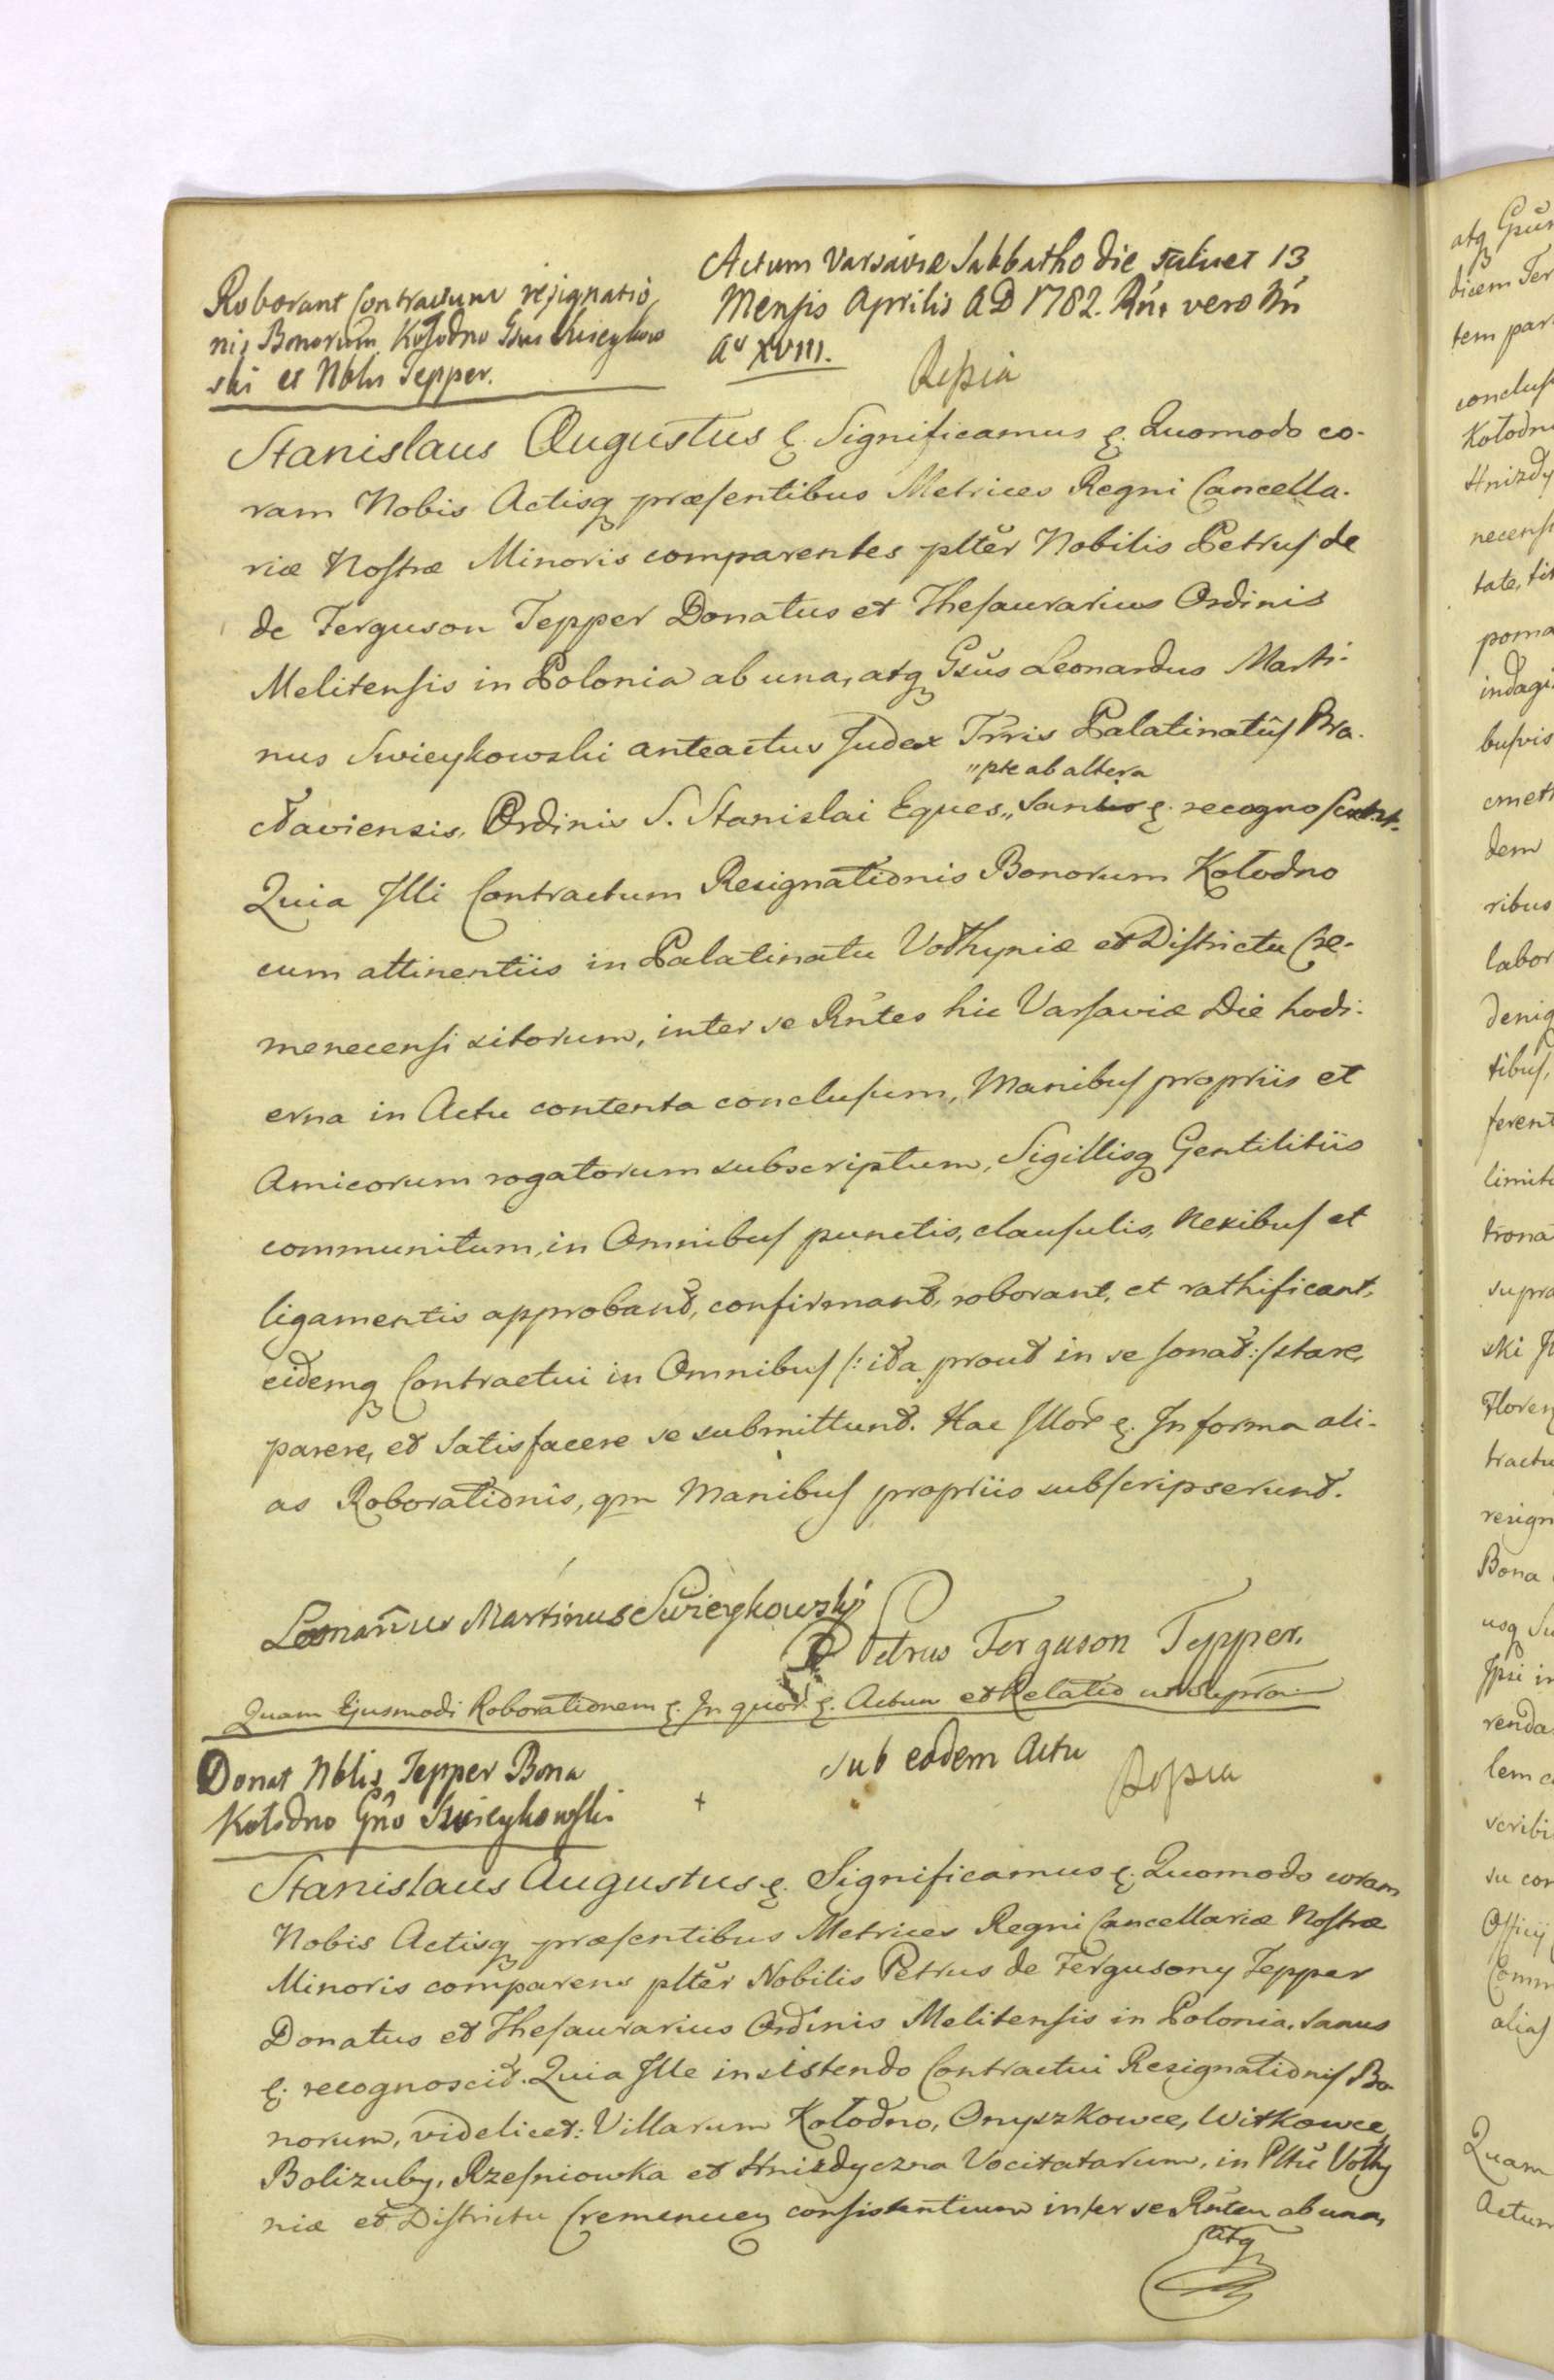 Roborant Contractum resignatio
nis Bonorum Kołodno Gsus Swieykow
ski et Nblis Tepper.
Actum Varsaviæ Sabbatho die scilicet 13
Mensis Aprilis AD 1782. Rni vero Nri
Aº XVIII.
Stanislaus Augustus &. Significamus &. Quomodo co-
ram Nobis Actisq præsentibus Metrices Regni Cancella-
riæ Nostræ Minoris comparentes plter Nobilis Petrus de
de Ferguson Tepper Donatus et Thesaurarius Ordinis
Melitensis in Polonia ab una, atq Gsus Leonardus Marti-
nus Swieykowski anteactus Judex Trris Palatinatûs Bra-
"pte ab altera
claviensis, Ordinis S. Stanislai Eques,, Sani &. recognoscunt.
Quia Illi Contractum Resignationis Bonorum Kołodno
cum attinentiis in Palatinatu Volhyniæ et Districtu Cre-
menecensi sitorum, inter se Rntes hic Varsaviæ Die hodi-
erna in Actu contenta conclusum, Manibus propriis et
Amicorum rogatorum subscriptum, Sigillisq Gentilitiis
communitum, in Omnibus punctis, clausulis, nexibus et
ligamentis approbant, confirmant, roborant, et rathificant,
eidemq Contractui in Omnibus /: ita prout in se sonat :/ stare,
parere, et Satisfacere se submittunt. Hac Illor &. In forma ali-
as Roborationis, qm Manibus propriis subscripserunt.
Leonardus Martinus Swieykowski
Petrus Ferguson Tepper.
Quam Ejusmodi Roborationem &. In quor. &. Actum et Relatio ut supra
Donat Nblis Tepper Bona
Kołodno Gno Swieykowski
+
Sub eodem Actu
Stanislaus Augustus &. Significamus &. Quomodo coram
Nobis Actisq præsentibus Metrices Regni Cancellariæ Nostræ
Minoris comparens plter Nobilis Petrus de Fergusony Tepper
Donatus et Thesaurarius Ordinis Melitensis in Polonia, Sanus
&. recognoscit. Quia Ille insistendo Contractui Resignationis Bo-
norum, videlicet: Villarum Kołodno, Onyszkowce, Witkowce,
Bolizuby, Rzesniowka et Hnizdyczna Vocitatarum, in Pltu Volhy
niæ et Districtu Cremenecen consistentium inter se Rnten ab una,
atq
atq Gsus
dicem Ter
tem par
conclus
Kołodn
Hnizdy
necens
tate, tit
poma
indagi
busvis
cmet
dem
ribus
labor
deniq
tibus,
ferent
limit
trona
supra
ski
Floren
tractu
resign
Bona
usq Su
Ipsi in
renda
lem c
scribi
su cor
Officij
Comm
alias
Quam
Actum